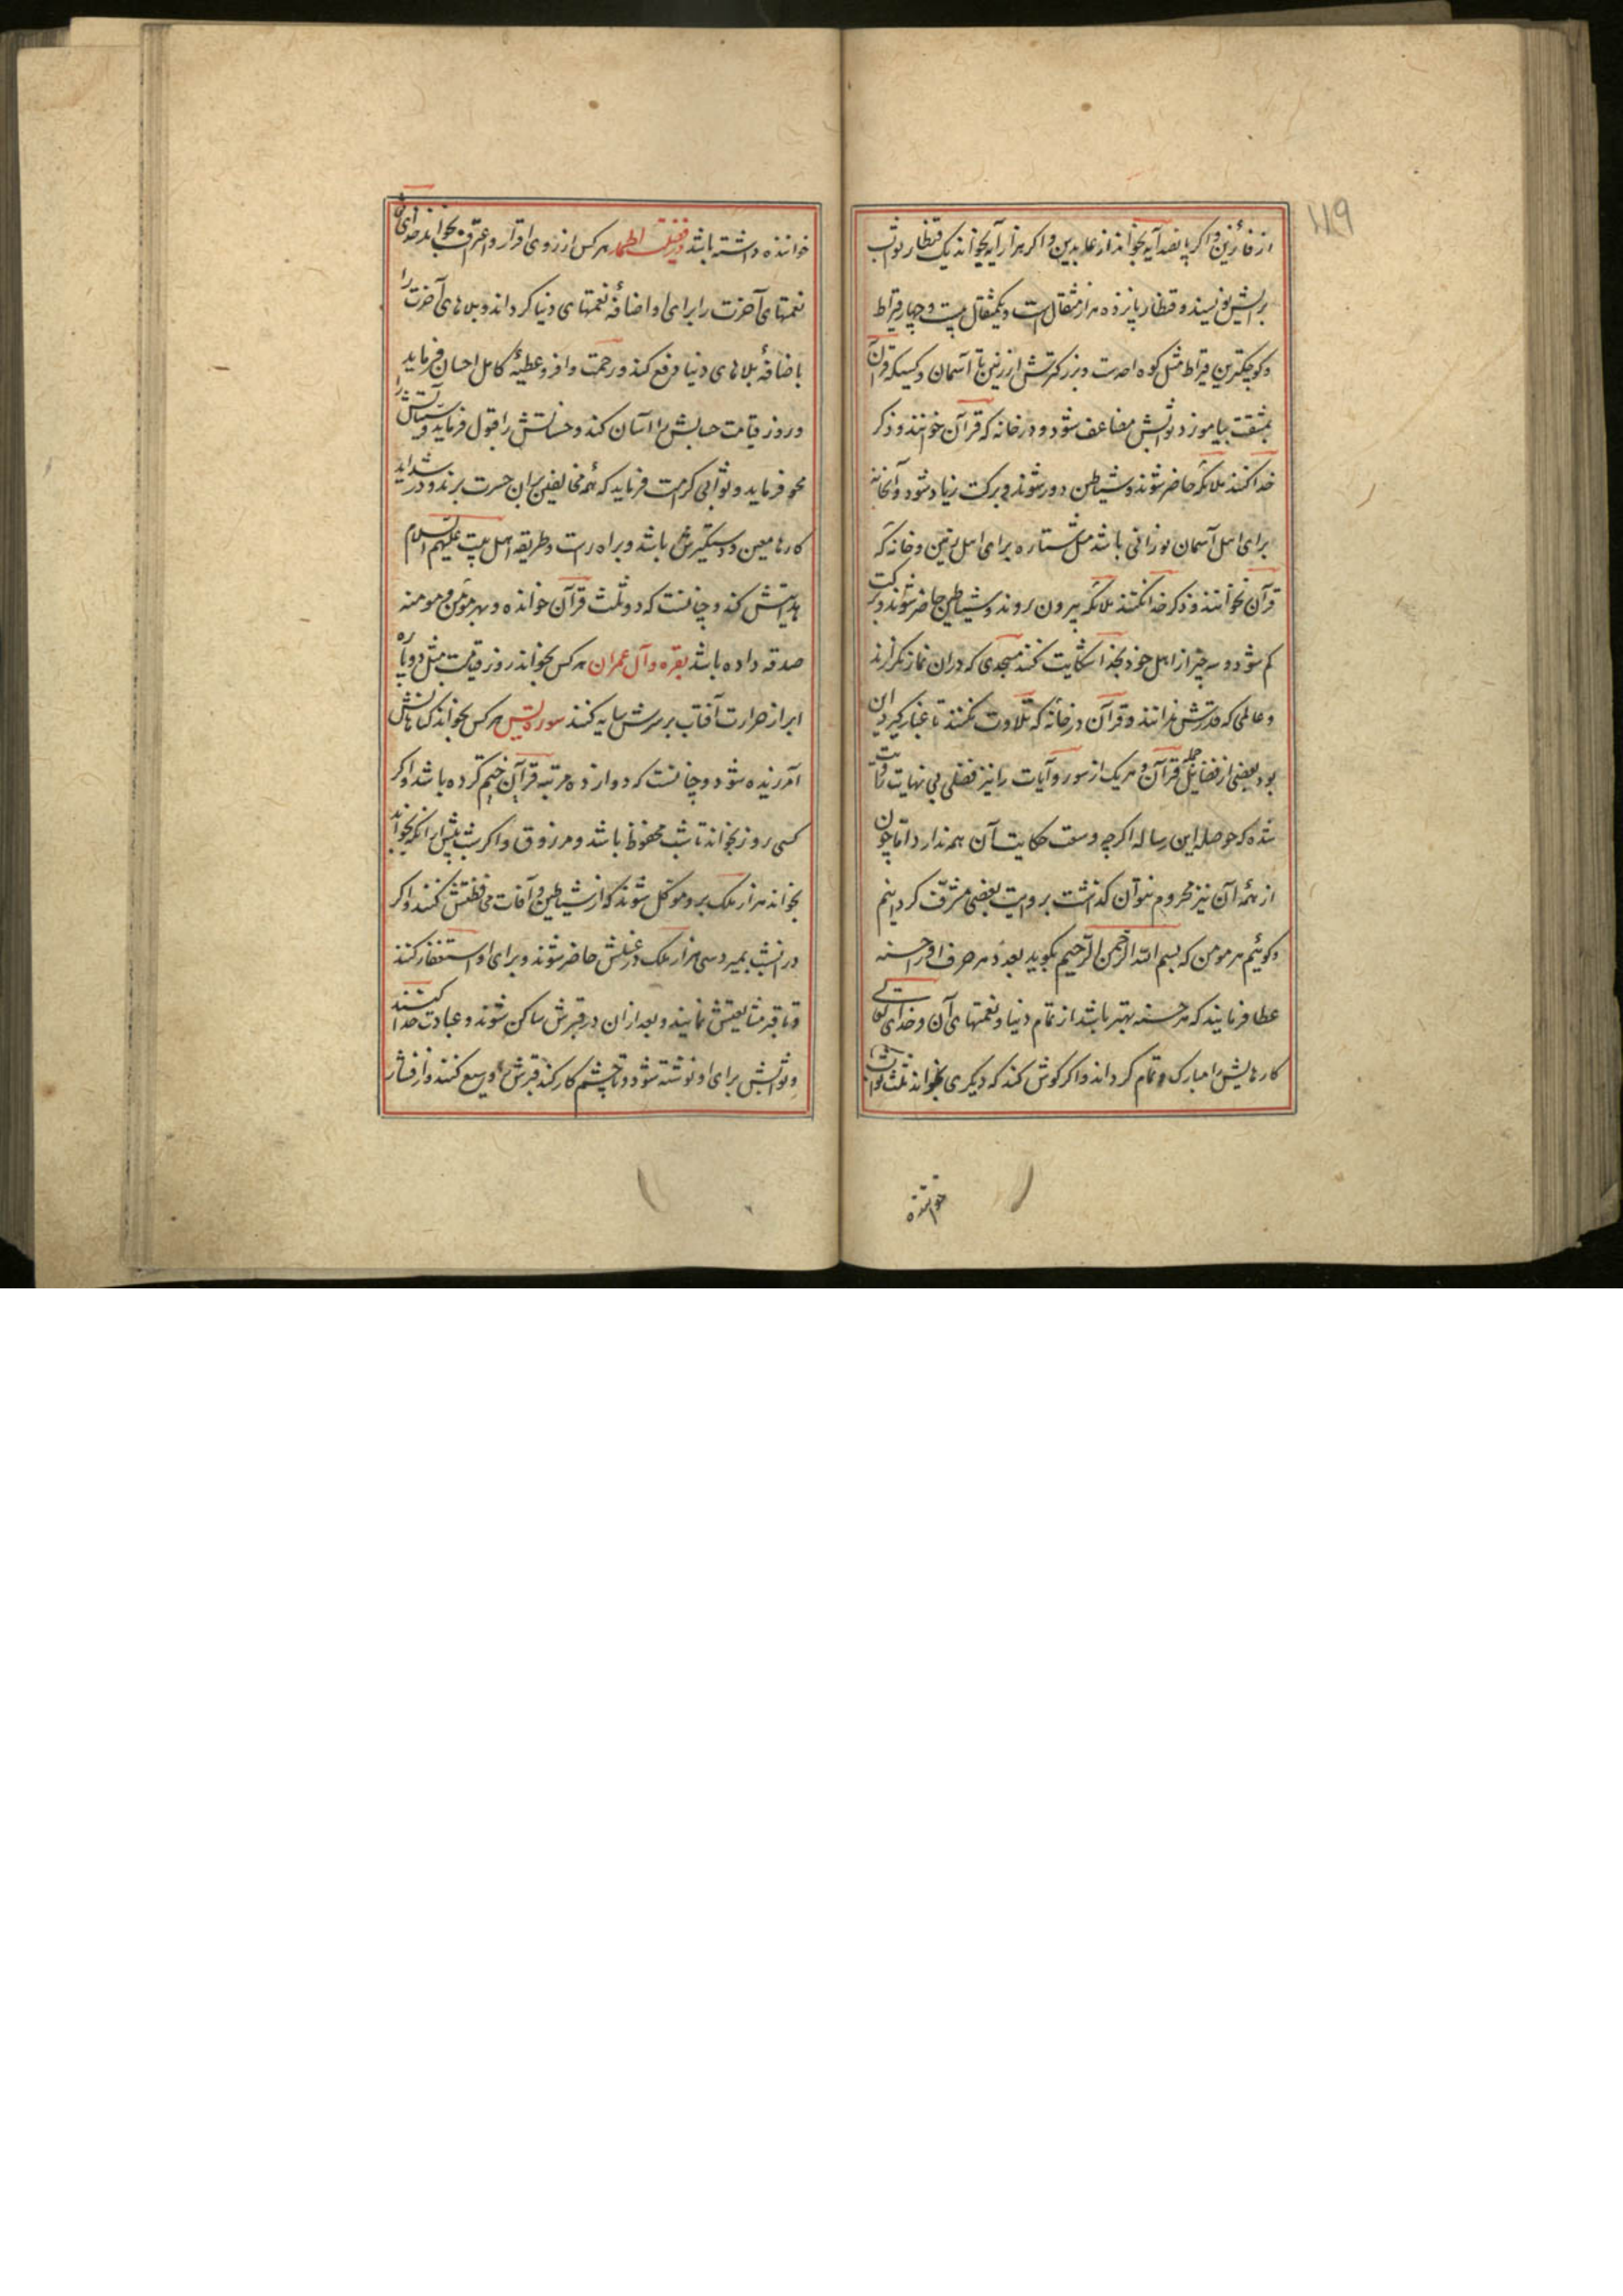 ۱۱۹
از فائزین و اگر پانصد آیه بخواند از عابدین و اگر هزار آیه بخواند یک قنطار ثواب
برایش نویسند و قنطار پانزده هزار مثقال است و یکمثقال بیست و چهار قیراط
و کوچکترین قیراط مثل کوه احدست و بزرگترش از زمین تا آسمان و کسیکه قرآن
بمشقت بیاموزد ثوابش مضاعف شود و در خانه که قرآن خوانند و ذکر
خدا کنند ملائکه حاضر شوند و شیاطین دور شوند و برکت زیاد شود و آنخانه
برای اهل آسمان نورانی باشد مثل ستاره برای اهل زمین و خانه که
قرآن نخوانند و ذکر خدا نکنند ملائکه بیرون روند و شیاطین حاضر شوند و برکت
کم شود و سه چیز از اهل خود بخدا شکایت کنند مسجدی که دران نماز نگزارند
و عالمی که قدرش ندانند و قرآن در خانه که تلاوت نکنند تا غبار گیرد این
بود بعضی از فضایل جمله قرآن و هر یک از سور و آیات را نیز فضلی بی نهایت روایت
شده که حوصله این رساله اگرچه وسعت حکایت آن همه ندارد اما چون
از همه آن نیز محروم نتوان گذشت بروایت بعضی مشرّف گردانیم
و گوئیم هر مومن که بسم الله الرحمن الرحیم بگوید بعدد هر حرف او را حسنه
عطا فرمایند که هر حسنه بهتر باشد از تمام دنیا و نعمتهای آن و خدای تعالی
کارهایش را مبارک و تمام گرداند و اگر گوش کند که دیگری بخواند ثلث ثواب
خواننده
خواننده داشته باشد در فضیلت الحمد هر کس از روی اقرار و اعتراف بخواند خدای تعالی
نعمتهای آخرت را برای او اضافهٔ نعمتهای دنیا گرداند و بلاهای آخرت را
باضافهٔ بلاهای دنیا دفع کند و رحمت وافر و عطیهٔ کامل احسان فرماید
و روز قیامت حسابش را آسان کند و حسناتش را قبول فرماید و سیئاتش را
محو فرماید و ثوابی کرامت فرماید که همه مخالفین بران حسرت برند و در شداید
کارها معین و دستگیرش باشد و براه راست و طریقه اهل بیت علیهم السلام
هدایتش کند و چنانست که دو ثلث قرآن خوانده و بهر مومن و مومنه
صدقه داده باشد بقره و آل عمران هر کس بخواند روز قیامت مثل دو پاره
ابر از حرارت آفتاب بر سرش سایه کنند سوره یس هر کس بخواند گناهانش
آمرزیده شود و چنانست که دوازده مرتبه قرآن ختم کرده باشد و اگر
کسی روز بخواند تا شب محفوظ باشد و مرزوق و اگر شب پیش از انکه بخوابد
بخواند هزار ملک برو موکل شوند که از شیاطین و آفات محافظتش کنند و اگر
در انشب بمیرد سی هزار ملک در غسلش حاضر شوند و برای او استغفار کنند
و تا قبر مشایعتش نمایند و بعد ازان در قبرش ساکن شوند و عبادت خدا کنند
و ثوابش برای او نوشته شود و تا چشم کار کند قبرش وسیع کنند و از فشار